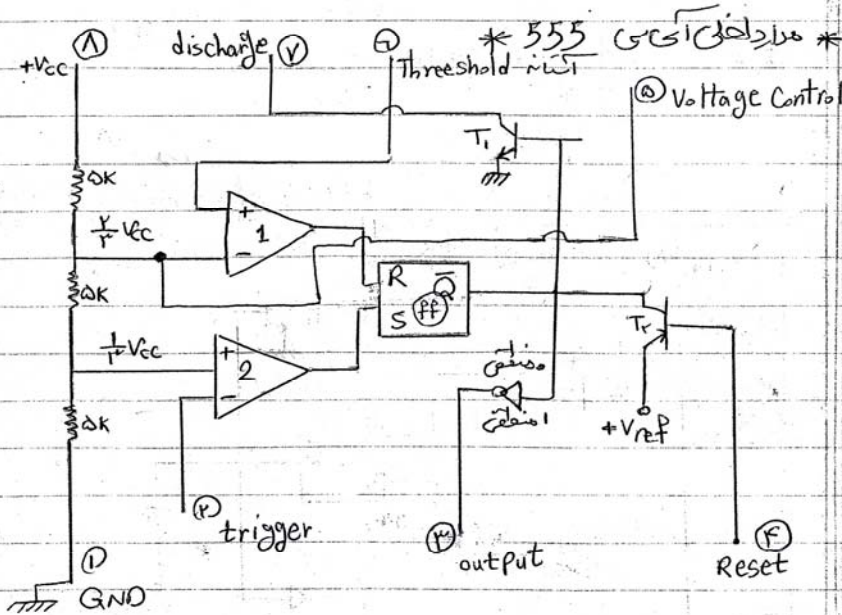 * مدار داخلی آی سی 555 *
۸
+Vcc
discharge ۷
۶
Threeshold آستانه
۵ Voltage Control
T۱
۵K
۲/۳ Vcc
+
1
-
R
Q̄
S
ff
۵K
T۲
۱/۳ Vcc
+
2
-
۰ منطقی
۱ منطقی
+Vref
۵K
۲
trigger
۳
output
۴
Reset
۱
GND